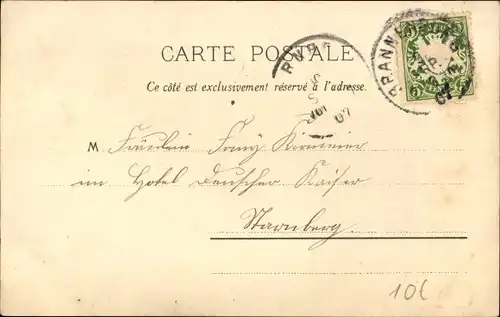 CARTE POSTALE
Ce côté est exclusivement réservé à l'adresse.
M Fräulein Franz
im Hotel Deutscher Kaiser
Starnberg.
10(